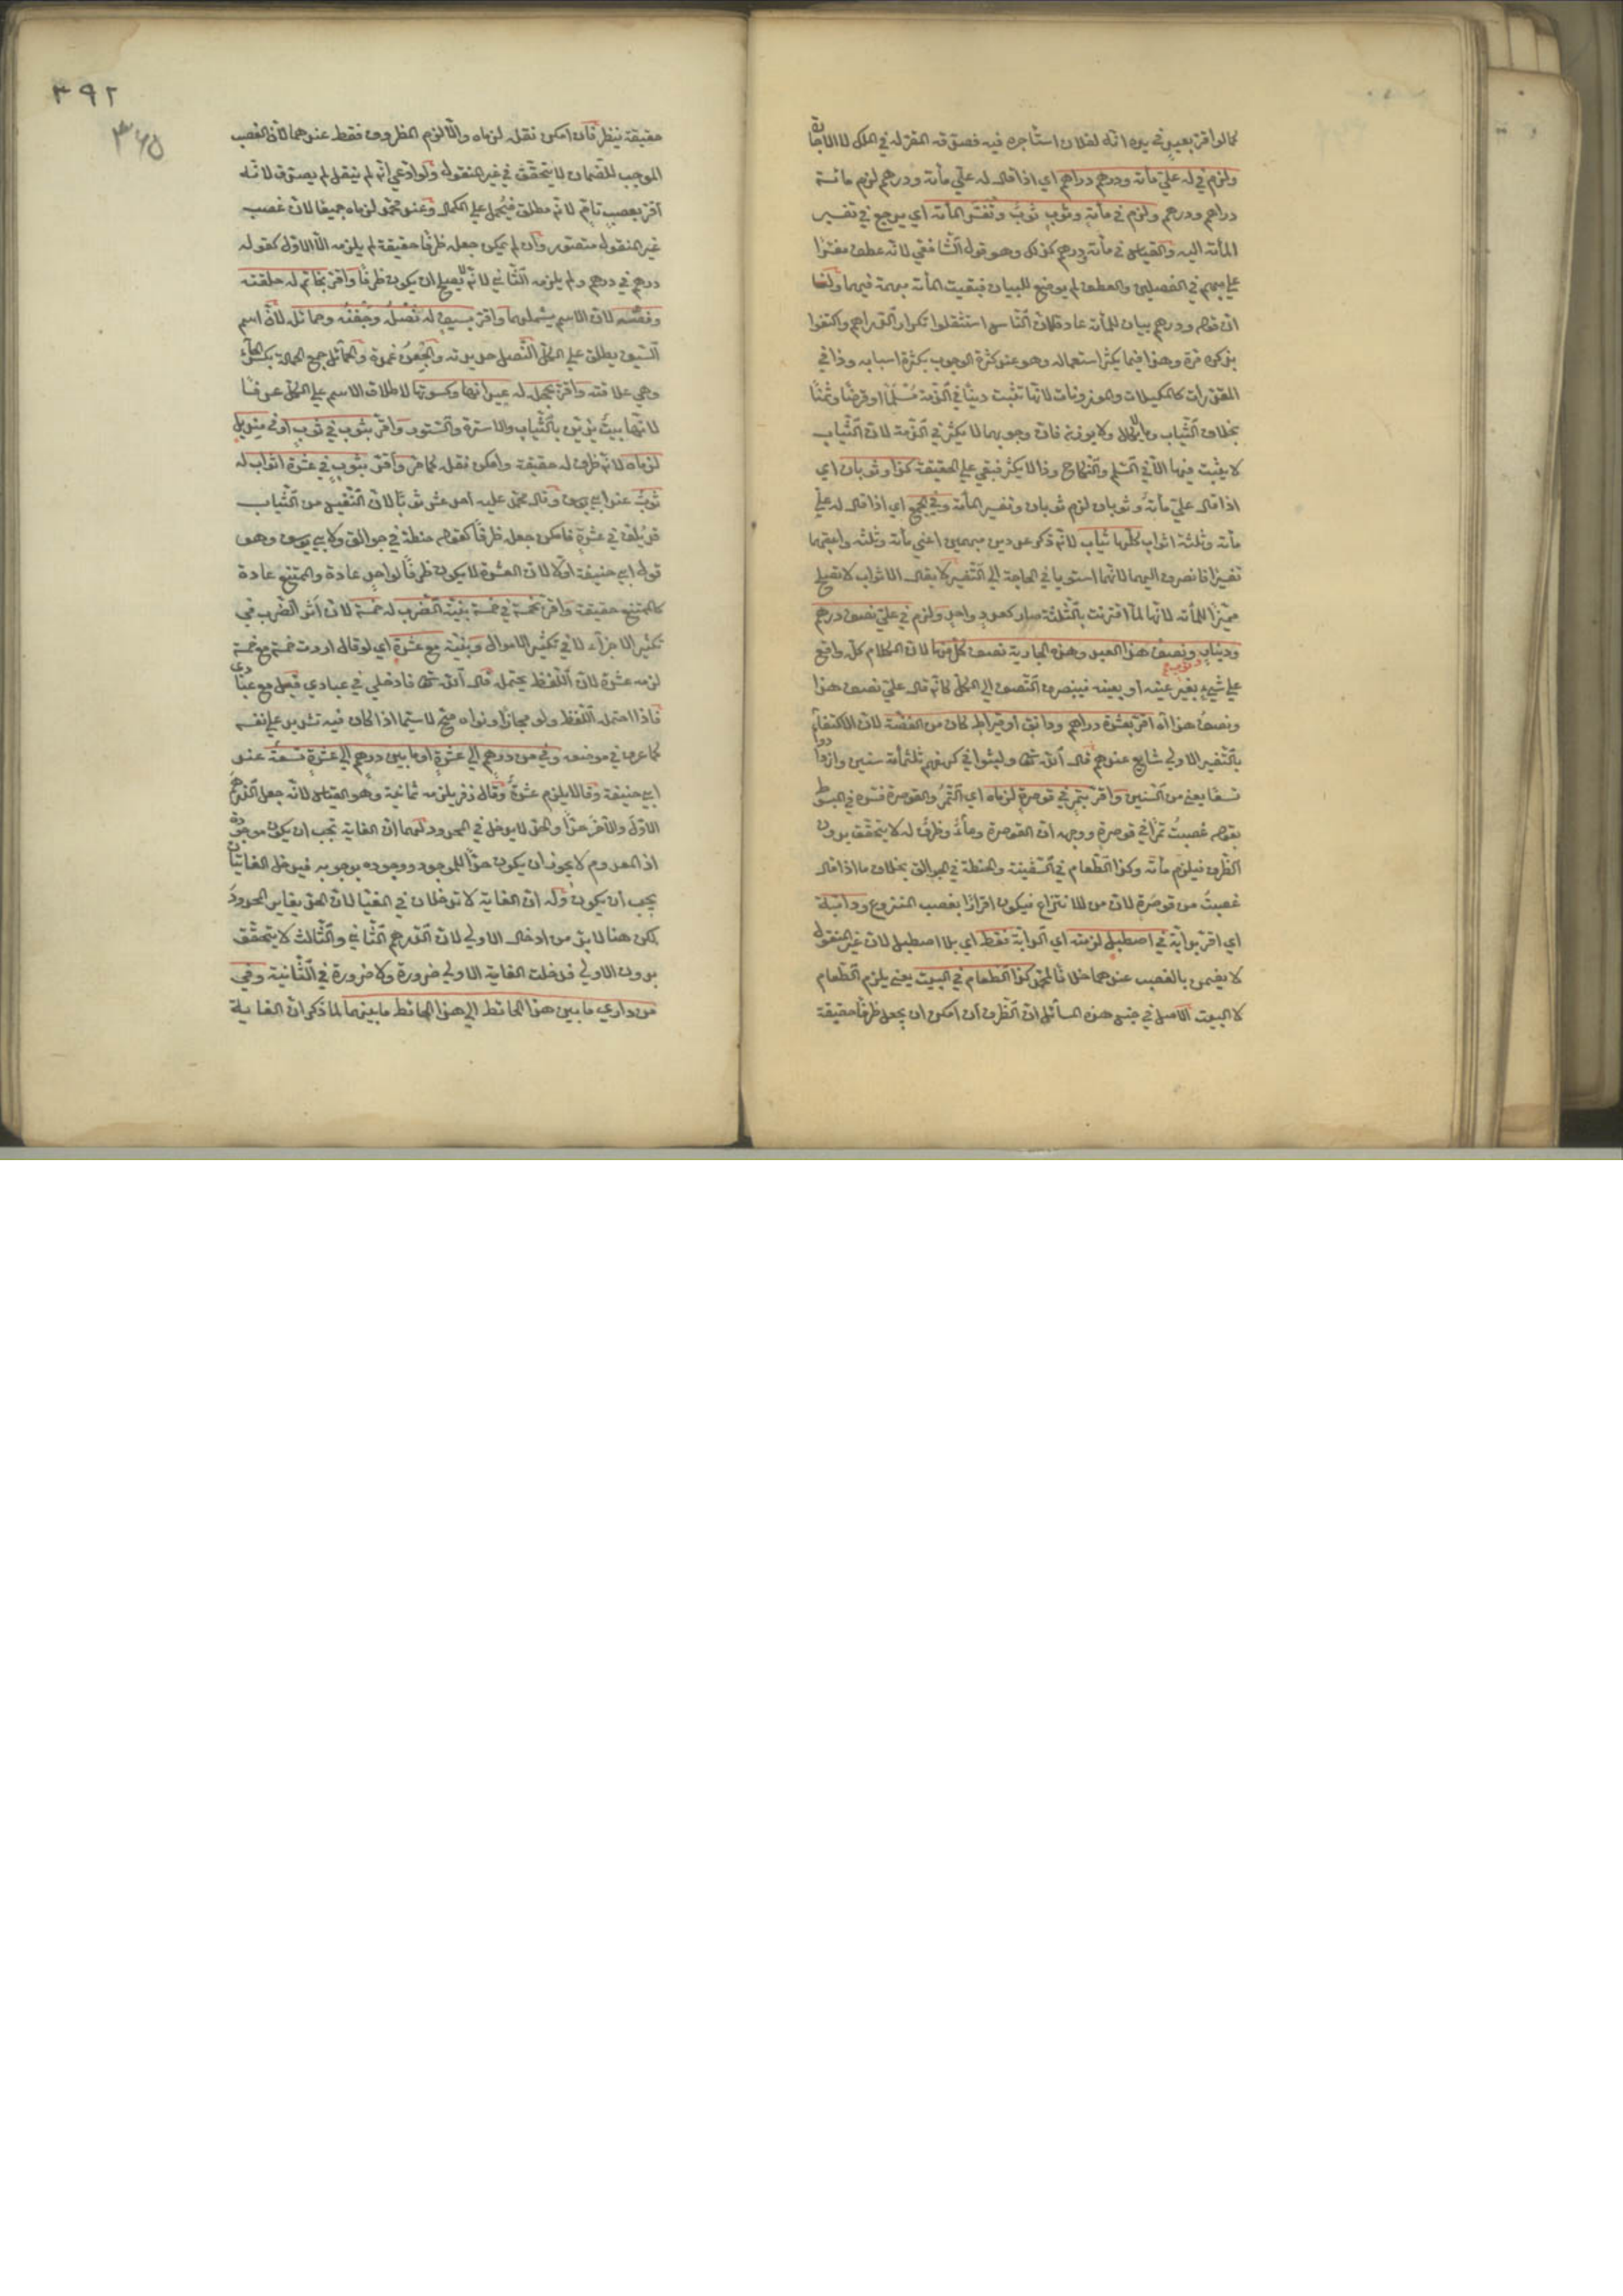 كما لو اقر بعين في يده انه لفلان استأجره فيه فصدقه المقر له في الملك لا الاجارة
ولزم في له علي مأة ودرهم دراهم اي اذا قال له علي مأة ودرهم لزم مائة
دراهم ودرهم ولزم في مأة وثوب ثوب وتفسر المأة اي يرجع في تفسير
المأة اليه والقياس في مأة ودرهم كذلك وهو قول الشافعي لانه عطف مفسرا
علي مبهم في الفصلين والعطف لم يوضع للبيان فبقيت المأة مبهمة فيهما ولنا
ان قوله ودرهم بيان للمأة عادة لان الناس استثقلوا تكرار الدراهم واكتفوا
بذكره مرة وهذا فيما يكثر استعماله وهو عند كثرة الوجوب بكثرة اسبابه وذا في
المقدرات كالمكيلات والموزونات لانها تثبت دينا في الذمة سلما او قرضا وثمنا
بخلاف الثياب وما لا يكال ولا يوزن فان وجوبها لا يكثر في الذمة لان الثياب
لا يثبت فيها الا في السلم والنكاح وذا لا يكثر فبقي علي الحقيقة كذا وثوبان اي
اذا قال علي مأة وثوبان لزم ثوبان وتفسير المأة وفي الجمع اي اذا قال له علي
مأة وثلثة اثواب كلها ثياب لانه ذكر عددين مبهمين اعني مأة وثلثة واعقبهما
تفسيرا فانصرف اليهما لانهما استويا في الحاجة الي التفسير لا يقال الاثواب لا تصلح
مميزا للمأة لانها لما اقترنت بالثلثة صار كعدد واحد ولزم في علي نصف درهم
ودينار وثوب ونصف هذا العبد وهذه الجارية نصف كل منها لان الكلام كله واقع
علي شيء بغير عينه او بعينه فينصرف النصف الي الكل كانه قال علي نصف هذا
ونصف هذا اه اقر بعشرة دراهم ودانق او قيراط كان من الفضة لان الاكتفاء
بالتفسير الاولي شايع عندهم قال الله تعالى ولبثوا في كهفهم ثلثمأة سنين وازدادوا
تسعا يعني من السنين واقر بتمر في قوصرة لزماه اي التمر والقوصرة فسره في المبسوط
بقوله غصبت تمرا في قوصرة ووجهه ان القوصرة وعاء وظرف له لا يتحقق بدون
الظرف فيلزم مأة وكذا الطعام في السفينة والحنطة في الجوالق بخلاف ما اذا قال
غصبت من قوصرة لان من للانتزاع فيكون اقرارا بغصب المنزوع ودابة
اي اقر بدابة في اصطبل لزمته اي الدابة فقط اي بلا اصطبل لان غير المنقول
لا يضمن بالغصب عندهما خلافا لمحمد كذا الطعام في البيت يعني يلزم الطعام
لا البيت الاصل في جنس هذه المسائل ان الظرف ان امكن ان يجعل ظرفا حقيقة
٣٩٢
٣٦٥
حقيقة ينظر فان امكن نقله لزماه والا لزم المظروف فقط عندهما لان الغصب
الموجب للضمان لا يتحقق في غير المنقول ولو ادعي انه لم ينقل لم يصدق لانه
اقر بغصب تام لانه مطلق فيحمل علي الكمال وعند محمد لزماه جميعا لان غصب
غير المنقول متصور وان لم يمكن جعله ظرفا حقيقة لم يلزمه الا الاول كقوله
درهم في درهم ولم يلزمه الثاني لانه لا يصلح ان يكون ظرفا واقر بخاتم له حلقته
وفصه لان الاسم يشملهما واقر بسيف له نصله وجفنه وحمائله لان اسم
السيف يطلق علي الكل النصل حديدته والجفن غمده والحمائل جمع الحمالة بكسر الحاء
وهي علاقته واقر بحجلة له عيدانها وكسوتها لاطلاق الاسم علي الكل عرفا
لانها بيت يزين بالثياب والاسرة والستور واقر بثوب في ثوب او في منديل
لزماه لانه ظرف له حقيقة وامكن نقله كما مر واقر بثوب في عشرة اثواب له
ثوب عند ابي يوسف وقال محمد عليه احد عشر ثوبا لان النفيس من الثياب
قد يلف في عشرة فامكن جعله ظرفا كقوله حنطة في جوالق ولابي يوسف وهو
قول ابي حنيفة اولا لان العشرة لا يكون ظرفا لواحد عادة والممتنع عادة
كالممتنع حقيقة واقر بخمسة في خمسة بنية الضرب له خمسة لان اثر الضرب في
تكثير الاجزاء لا في تكثير الاموال وبنية مع عشرة اي لو قال اردت خمسة مع خمسة
لزمه عشرة لان اللفظ يحتمله قال الله تعالى فادخلي في عبادي قيل مع عبادي
فاذا احتمله اللفظ ولو مجازا ونواه صح لا سيما اذا كان فيه تشديد علي نفسه
كما عرف في موضعه وفي من درهم الي عشرة او ما بين درهم الي عشرة تسعة عند
ابي حنيفة وقالا يلزم عشرة وقال زفر يلزمه ثمانية وهو القياس لانه جعل الدرهم
الاول والآخر حدا والحد لا يدخل في المحدود لهما ان الغاية تجب ان يكون موجودة
اذ المعدوم لا يجوز ان يكون حدا للموجود ووجوده بوجوبه فيدخل الغايتان
يجب ان يكون وله ان الغاية لا تدخلان في المغيا لان الحد يغاير المحدود
لكن هنا لا بد من ادخال الاولي لان الدرهم الثاني والثالث لا يتحقق
بدون الاولي فدخلت الغاية الاولي ضرورة ولا ضرورة في الثانية وفي
من داري ما بين هذا الحائط الي هذا الحائط ما بينهما لما ذكر ان الغاية